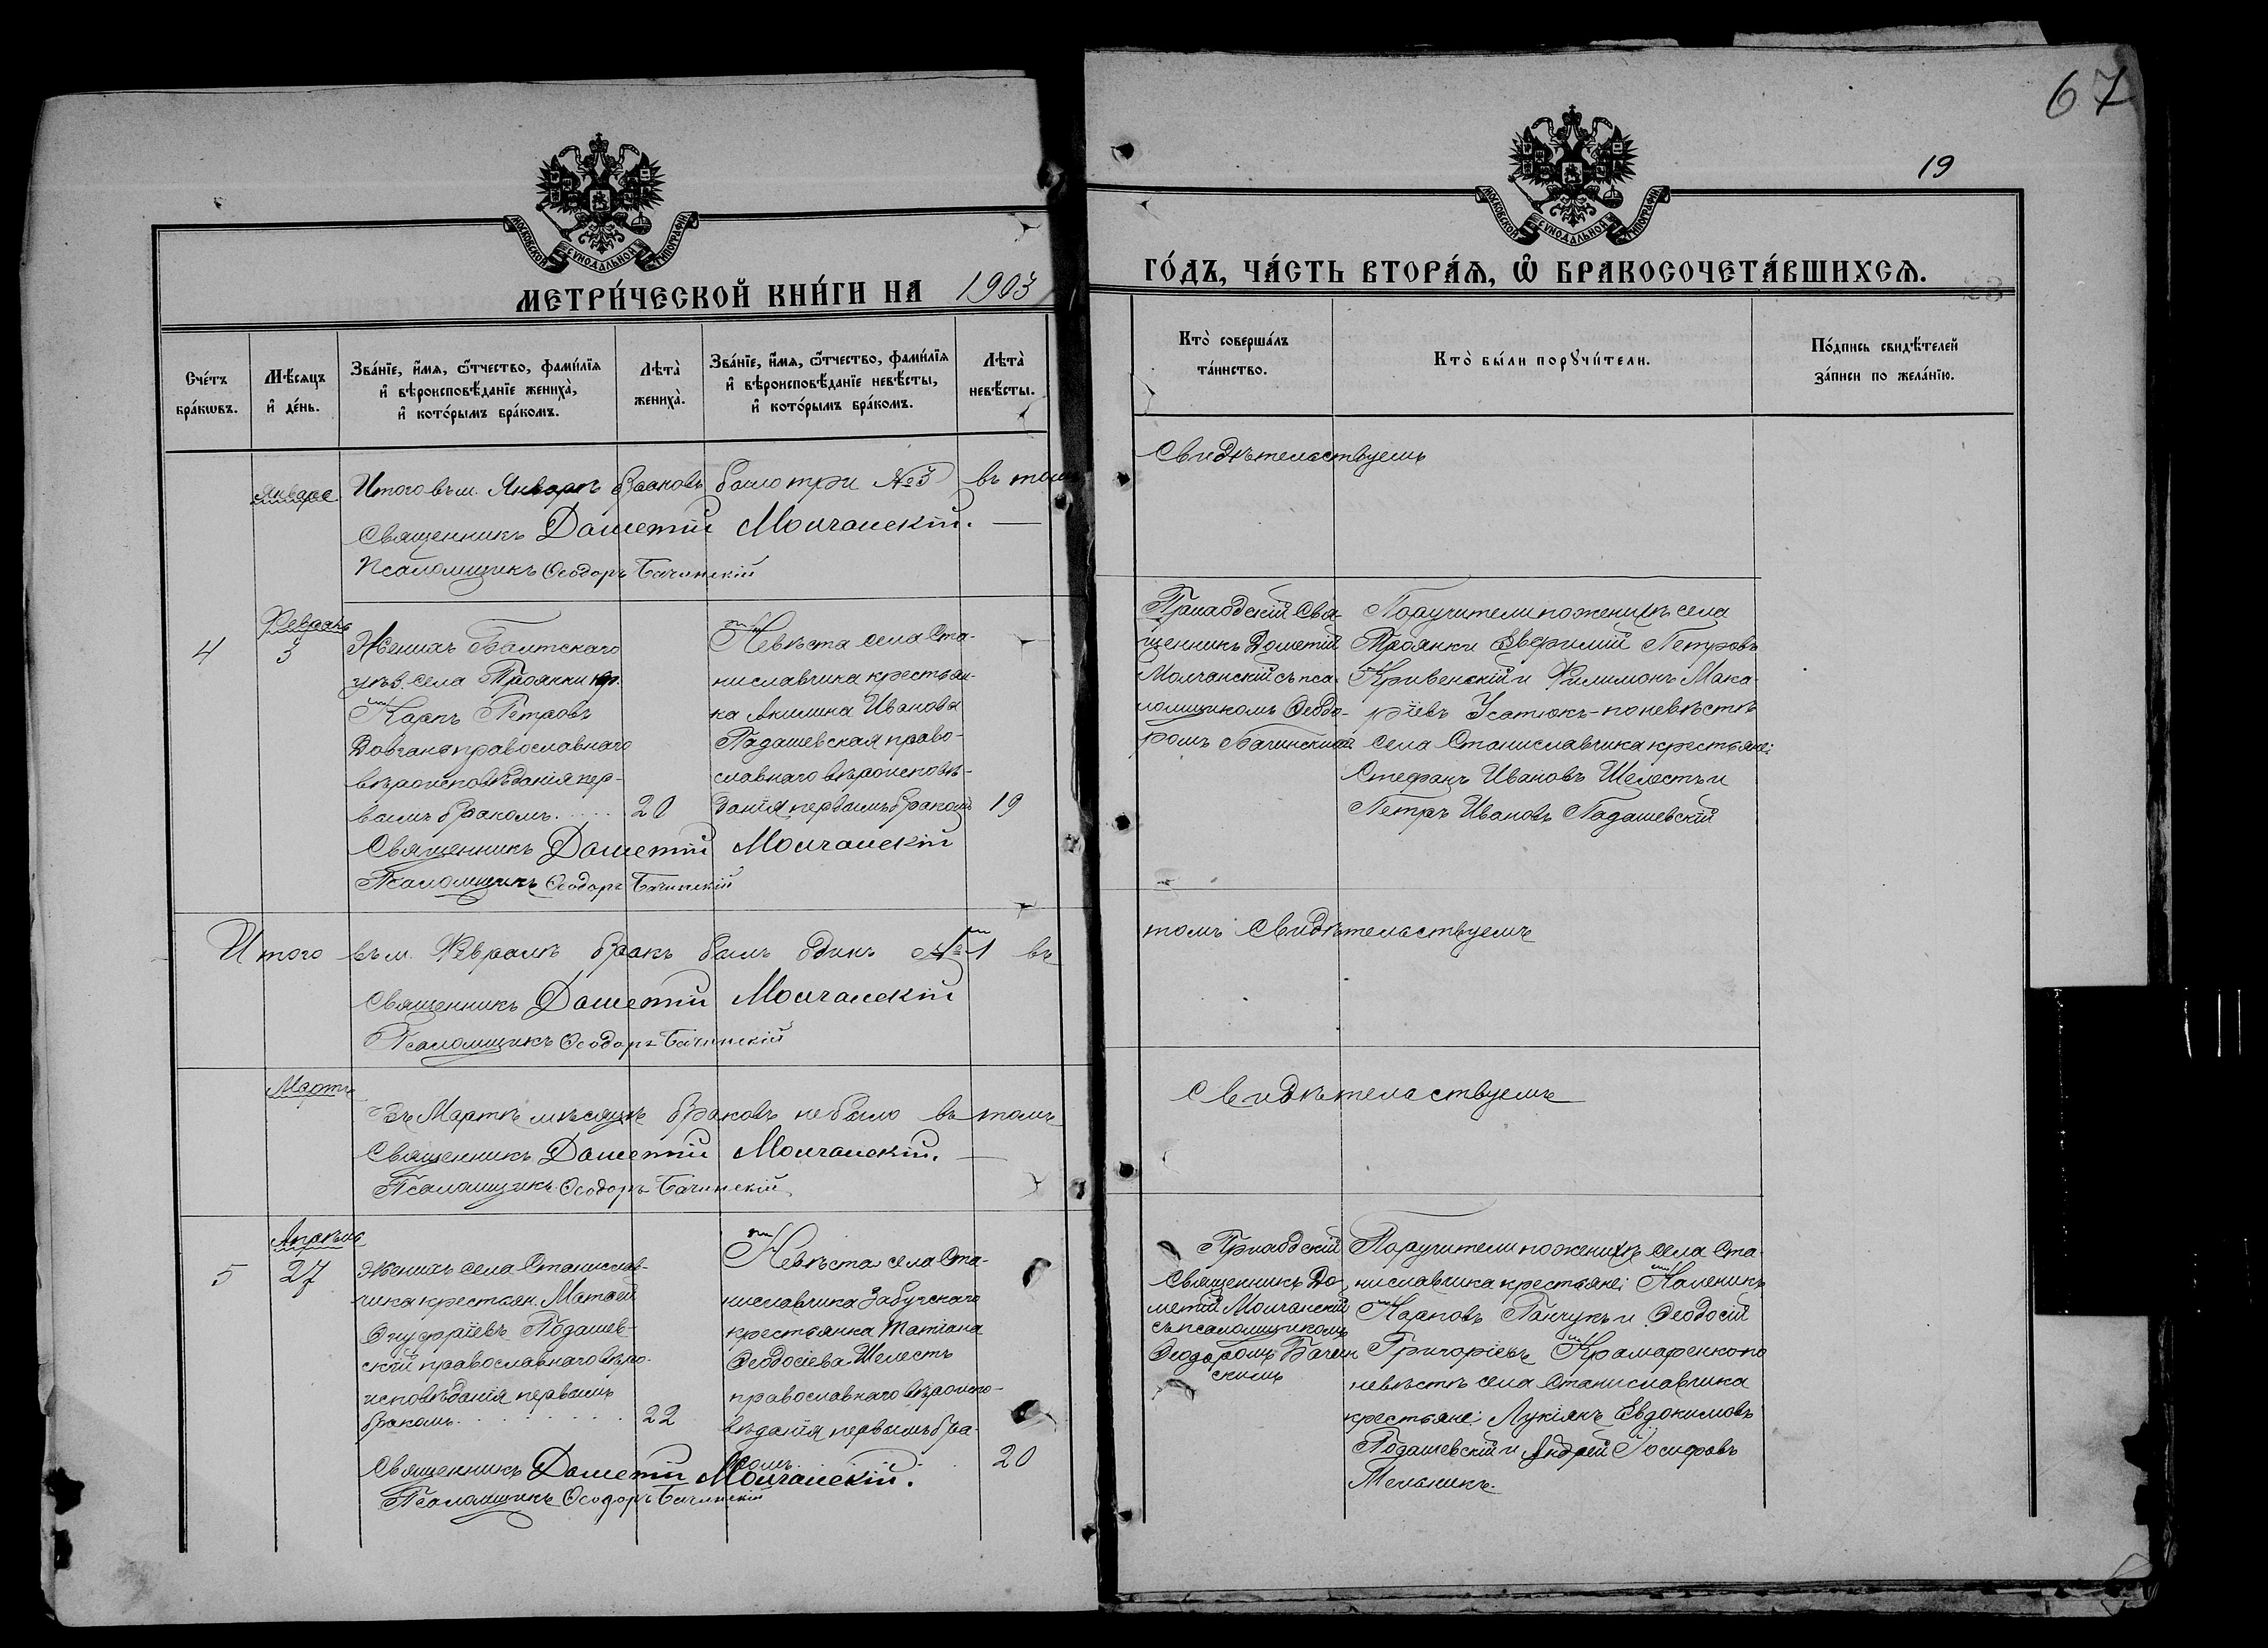 67
19
МОСКОВСКОЙ СУНОДАЛЬНОЙ ТИПОГРАФІИ
МОСКОВСКОЙ СУНОДАЛЬНОЙ ТИПОГРАФІИ
МЕТРИ́ЧЕСКОЙ КНИ́ГИ НА 1903
ГО́ДЪ, ЧА́СТЬ ВТОРА́Я, Ѽ БРАКОСОЧЕТА́ВШИХСѦ.
Сче́тъ
бра́кѡвъ.
Мѣ́сяцъ
и҆ де́нь.
Зва́нїе, и҆́мя, ѻ҆́тчество, фами́лїя
и҆ вѣроисповѣ́данїе жениха̀,
и҆ кото́рымъ бра́комъ.
Лѣта̀
жениха̀.
Зва́нїе, и҆́мя, ѻ҆́тчество, фами́лїя
и҆ вѣроисповѣ́данїе невѣ́сты,
и҆ кото́рымъ бра́комъ.
Лѣта̀
невѣ́сты.
Кто̀ соверша́лъ
та́инство.
Кто̀ бы́ли порꙋчи́тели.
По́дпись свидѣ́телей
за́писи по жела́нїю.
Январь
Итого въ м. Январѣ браковъ было три №3 въ томъ
Свидѣтельствуемъ
Священникъ Дометій Молчанскій.
Псаломщикъ Ѳеодоръ Бачинскій
Февраль
4
3
Женихъ Балтскаго
уѣз. села Троянки кр.
Карпъ Петровъ
Довгань православнаго
вѣроисповѣданія пер-
вымъ бракомъ.....
20
Невѣста села Ста-
ниславчика крестьян-
ка Акилина Иванова
Падашевская право-
славнаго вѣроисповѣ-
данія первымъ бракомъ
19
Приходскій Свя-
щенникъ Дометій
Молчанскій съ пса-
ломщикомъ Ѳеодо-
ромъ Бачинскимъ
Поручители по женихѣ села
Троянки Евфимій Петровъ
Кривенскій и Филимонъ Мака-
ріевъ Усатюкъ - по невѣстѣ
села Станиславчика крестьяне:
Стефанъ Ивановъ Шелестъ и
Петръ Ивановъ Падашевскій
Священникъ Дометій Молчанскій
Псаломщикъ Ѳеодоръ Бачинскій
Итого въ м. Февралѣ бракъ былъ одинъ №1 въ
томъ Свидѣтельствуемъ
Священникъ Дометій Молчанскій
Псаломщикъ Ѳеодоръ Бачинскій
Мартъ
Въ Мартѣ мѣсяцѣ браковъ не было въ томъ
Свидѣтельствуемъ
Священникъ Дометій Молчанскій.
Псаломщикъ Ѳеодоръ Бачинскій
Апрѣль
5
27
Женихъ села Станислав-
чика крестьян. Матѳей
Онуфріевъ Подашев-
скій православнаго вѣро-
исповѣданія первымъ
бракомъ..........
22
Невѣста села Ста-
ниславчика Забугскаго
крестьянка Татіана
Ѳеодосіева Шелестъ
православнаго вѣроиспо-
вѣданія первымъ бра-
комъ.
20
Приходскій
Священникъ До-
метій Молчанскій
съ псаломщикомъ
Ѳеодоромъ Бачин
скимъ
Поручители по женихѣ села Ста-
ниславчика крестьяне: Каленикъ
Карповъ Панчукъ и Ѳеодосій
Григоріевъ Крамаренко по
невѣстѣ села Станиславчика
крестьяне: Лукіянъ Евдокимовъ
Подашевскій и Андрей Іосифовъ
Мельникъ.
Священникъ Дометій Молчанскій.
Псаломщикъ Ѳеодоръ Бачинскій